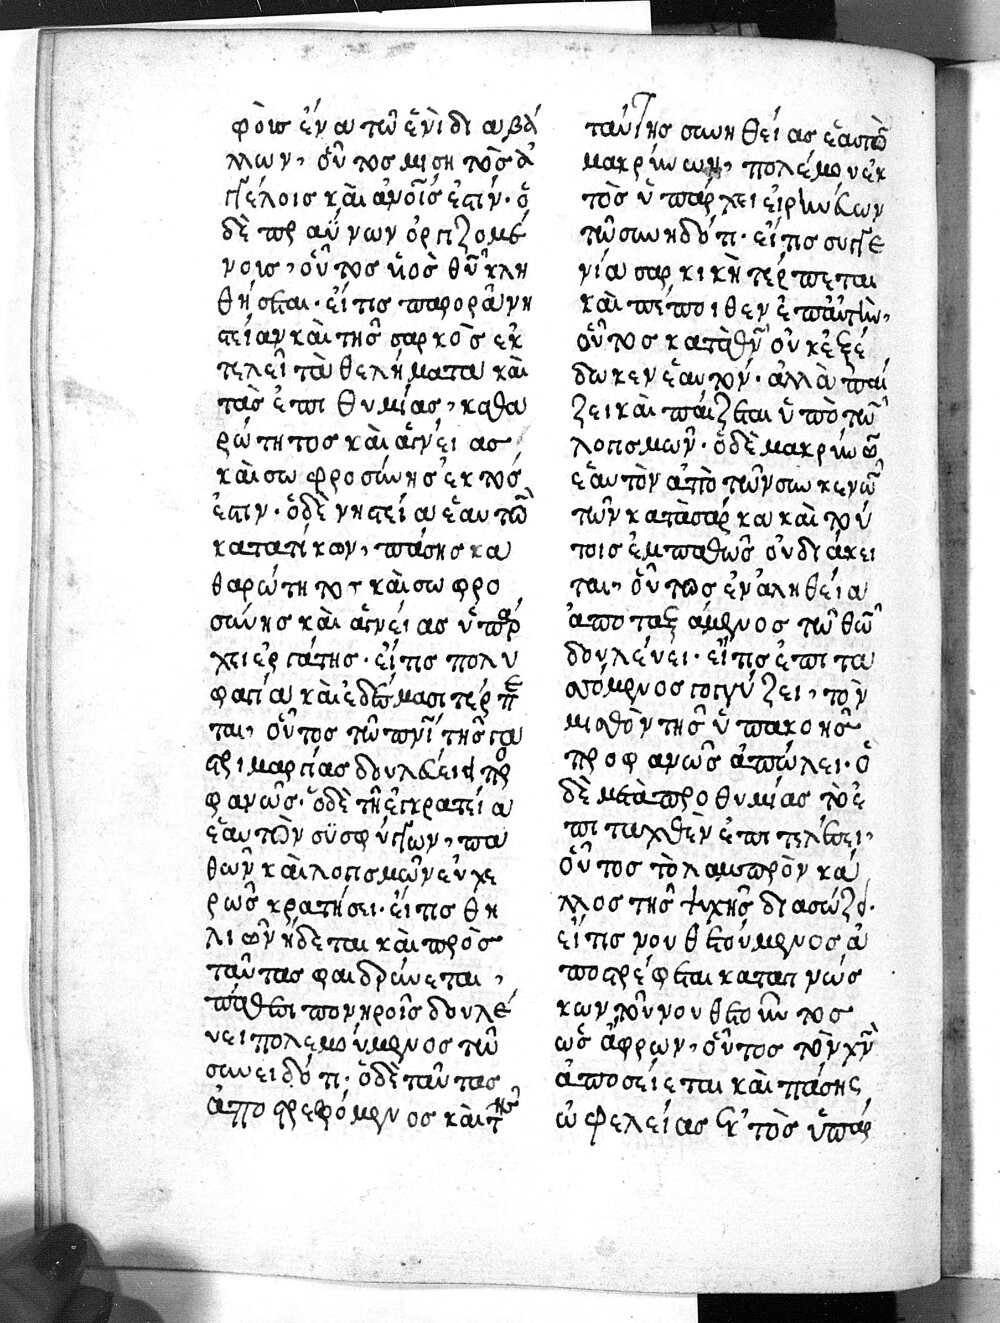 φοῖς ἕνα τῶ ἑνὶ διαβάλ
λων, οὗτος μισητὸς ἀγ
γέλοις καὶ ἀνοῖς ἐστιν· ὁ
δὲ πραΰνων ὀργιζομέ
νοις, οὗτος υἱὸς θυ κλη
θήσεται· εἴ τις παρορᾶ νη
στείαν καὶ τῆς σαρκὸς ἐκ
τελεῖ τὰ θελήματα καὶ
τὰς ἐπιθυμίας, καθα
ρώτητος καὶ ἁγνείας
καὶ σωφροσύνης ἐκτός
ἐστιν· ὁ δὲ νηστεία ἑαυτὸ
κατατήκων, πάσης κα
θαρώτητος καὶ σωφρο
σύνης καὶ ἁγνείας ὑπάρ
χει ἐργάτης· εἴ τις πολυ
φαγία καὶ ἐδέσμασι τέρπε
ται, οὗτος τῶ πνι τῆς γα
στριμαργίας δουλεύει προ
φανῶς· ὁ δὲ τῆ ἐγκρατεία
ἑαυτὸν συσφίγγων, πα
θῶν καὶ λογισμῶν εὐχε
ρῶς κρατήσει· εἴ τις θη
λιῶν ἥδεται καὶ πρὸς
ταύτας φαιδρύνεται,
πάθεσι πονηροῖς δουλεύ
νει πολεμούμενος τῶ
συνειδότι· ὁ δὲ ταύτας
ἀποστρεφόμενος καὶ τῆς
ταύτης συνηθείας ἑαυτὸ
μακρύνων, πολέμων ἐκ
τὸς ὑπάρχει εἰρηνεύων
τῶ συνηδότι· εἴ τις συγγε
νία σαρκικὴ τέρπεται
καὶ πέποιθεν ἐπ αὐτὴν,
οὗτος κατὰ θν οὐκ ἐξέ
δωκεν ἑαυτόν· ἀλλὰ παί
ζει καὶ παίζεται ὑπὸ τῶ
λογισμῶν· ὁ δὲ μακρύνω
ἑαυτὸν ἀπὸ τῶν συγκενῶ
τῶν κατὰ σάρκα καὶ τού
τοις ἐμπαθῶς οὐ διάκει
ται, οὗτος ἐν ἀληθεία
ἀποταξάμενος τῶ θω
δουλεύει· εἴ τις ἐπιτα
σσόμενος γογγύζει, τὸν
μισθὸν τῆς ὑπακοῆς
προφανῶς ἀπώλει· ὁ
δὲ μετὰ προθυμίας τὸ ἐ
πιταχθὲν ἐπιτελέσει,
οὗτος τὸ λαμπρὸν κά
λλος τῆς ψυχῆς διασώζει·
εἴ τις νουθετούμενος ἀ
ποστρέφεται καταγινώσ
κων τοῦ νουθετοῦντος
ὡς ἄφρων, οὗτος τὸν χν
ἀποσείεται καὶ πάσης
ὠφελείας ἐκτὸς ὑπάρ